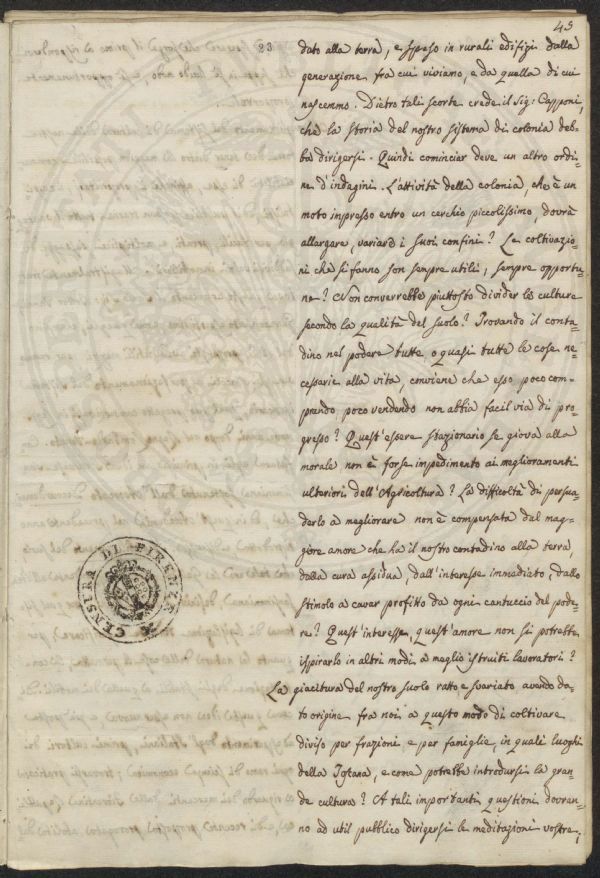 49
23
dato alla terra, e speso in rurali edifizi dalla
generazione, fra cui viviamo, e da quella di cui
nascemmo. Dietro tali scorte crede il Sig: Capponi,
che la storia del nostro sistema di colonia deb=
ba dirigersi. Quindi cominciar deve un altro ordi=
ne d'indagini. L'attività della colonia, che è un
moto impresso entro un cerchio piccolissimo, dovrà
allargare, variare i suoi confini? Le coltivazio=
ni che si fanno son sempre utili, sempre opportu=
ne? Non converrebbe piuttosto divider le culture
secondo la qualità del suolo? Trovando il conta=
dino nel podere tutte o quasi tutte le cose ne=
cessarie alla vita, conviene che esso, poco com=
prando, poco vendendo non abbia facil via di pro=
gresso? Quest'essere stazionario se giova alla
morale non è forse impedimento ai miglioramenti
ulteriori dell'Agricoltura? La difficoltà di persua=
derlo a migliorare non è compensata dal mag=
giore amore che ha il nostro contadino alla terra,
dalla cura assidua, dall'interesse immediato, dallo
stimolo a cavar profitto da ogni cantuccio del pode=
re? Quest'interesse, quest'amore non si potrebbe
ispirarlo in altri modi a meglio istruiti lavoratori?
La giacitura del nostro suolo ratto e svariato avendo da=
to origine fra noi a questo modo di coltivare
diviso per frazioni e per famiglie, in quali luoghi
della Toscana, e come potrebbe introdursi la gran=
de cultura? A tali importanti questioni dovran=
no ad util pubblico dirigersi le meditazioni vostre;
CENSURA DI FIRENZE